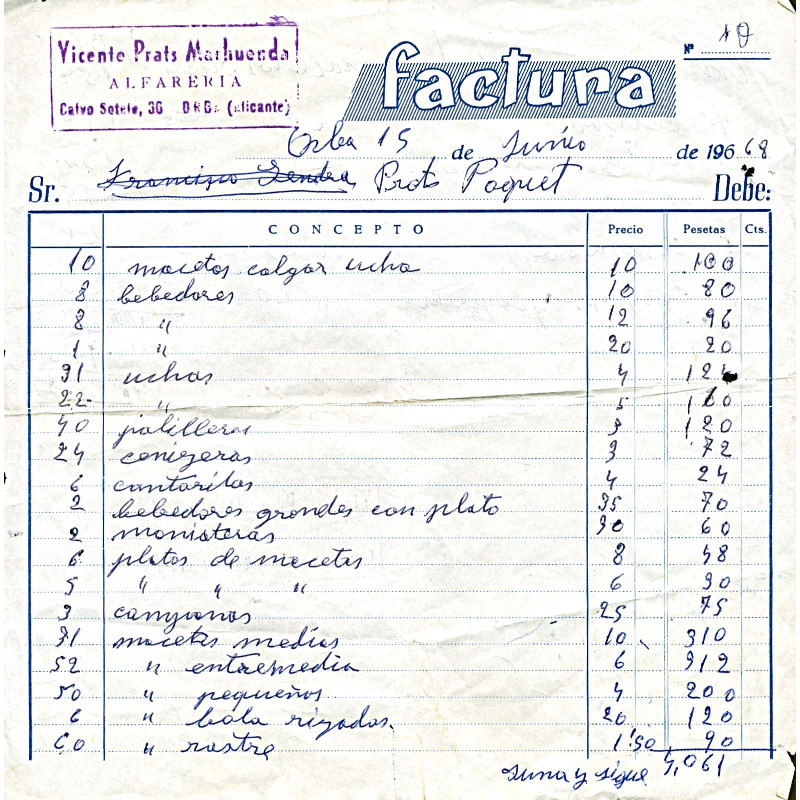 Vicente Prats Marhuenda
ALFARERIA
Calvo Sotelo, 36 ORBA (alicante)
Nº 10
factura
Orba 15 de Junio de 196 68
Sr. Francisco Sendra Prats Poquet Debe:
CONCEPTO Precio Pesetas Cts.
10 macetas colgar ucha 10 100
8 bebedores 10 80
8 " 12 96
1 " 20 20
31 uchas 4 124
22 " 5 110
40 palilleros 3 120
24 cenizeras 3 72
6 cantarilas 4 24
2 bebedores grandes con plato 35 70
2 moniateras 30 60
6 platos de macetas 8 48
5 " " " 6 30
3 25 75
31 macetas medias 10 310
52 " entremedia 6 312
50 " pequeños 4 200
6 " bola rizadas. 20 120
60 " rastre 1'50 90
suma y sigue 2,061